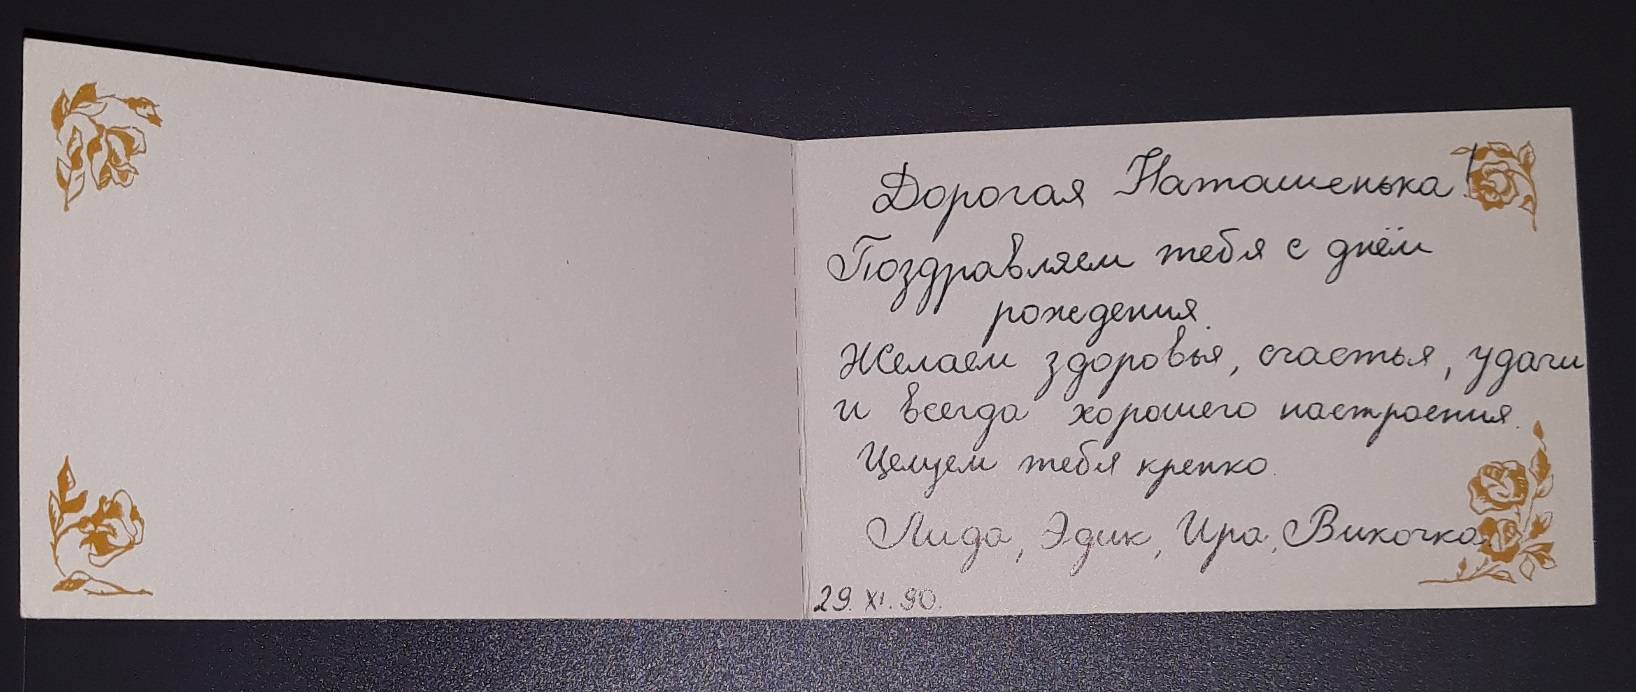 Дорогая Наташенька!
Поздравляем тебя с днём
рождения.
Желаем здоровья, счастья, удачи
и всегда хорошего настроения.
Целуем тебя крепко.
Лида, Эдик, Ира, Викочка.
29. XI. 90.